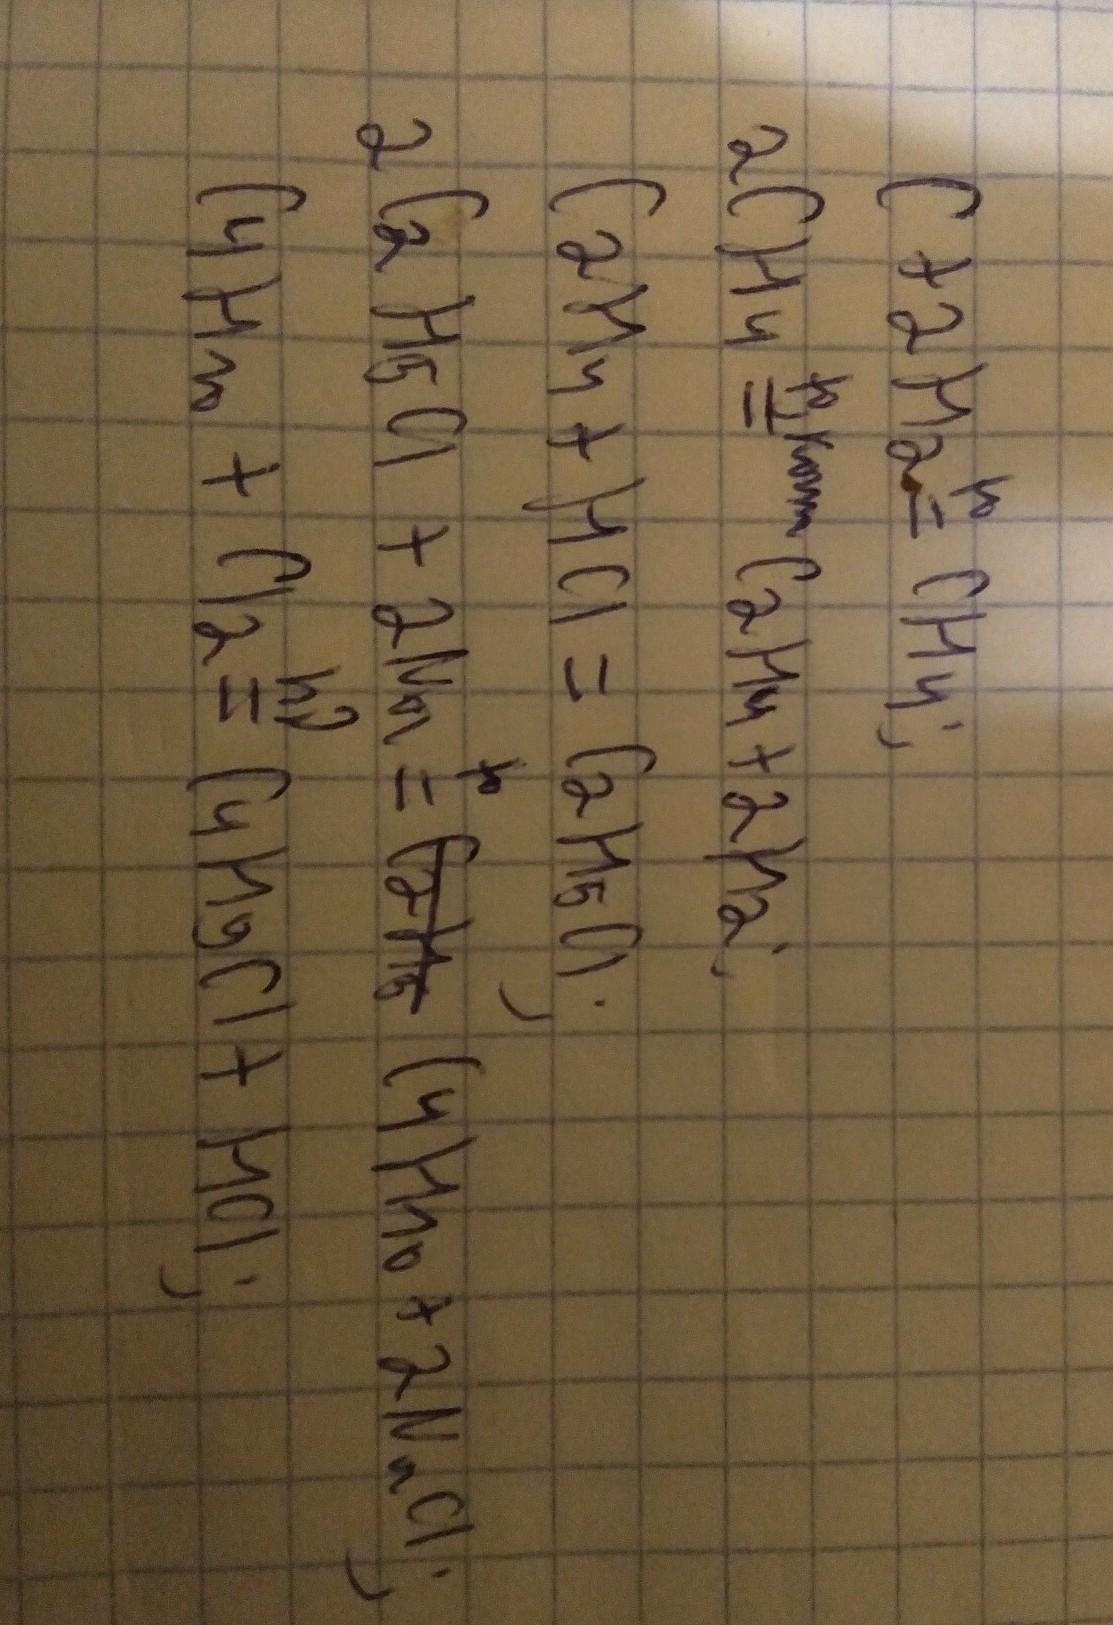 C + 2H2 =t° CH4;
2CH4 =t°, кат C2H4 + 2H2;
C2H4 + HCl = C2H5Cl;
2C2H5Cl + 2Na =t° C2H5 C4H10 + 2NaCl;
C4H10 + Cl2 =hν C4H9Cl + HCl;